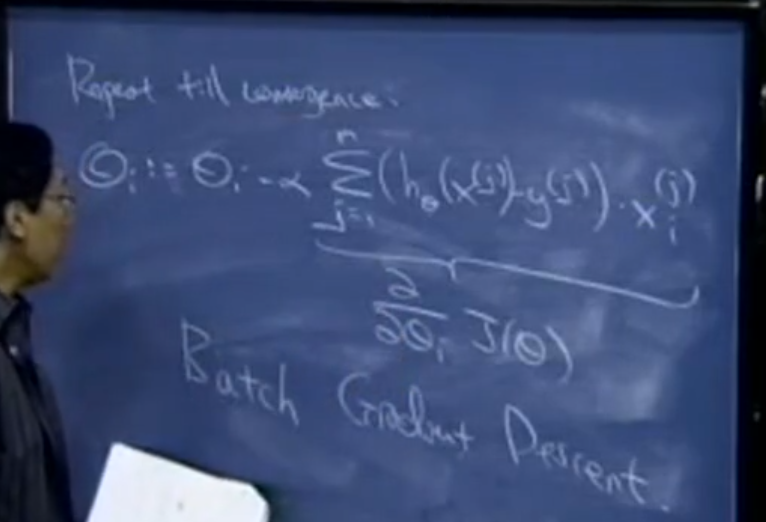 Repeat till convergence:
Θᵢ := Θᵢ - α ∑ⱼ₌₁ⁿ (h_θ(x⁽ʲ⁾) - y⁽ʲ⁾) · xᵢ⁽ʲ⁾
∂/∂θᵢ J(Θ)
Batch Gradient Descent.